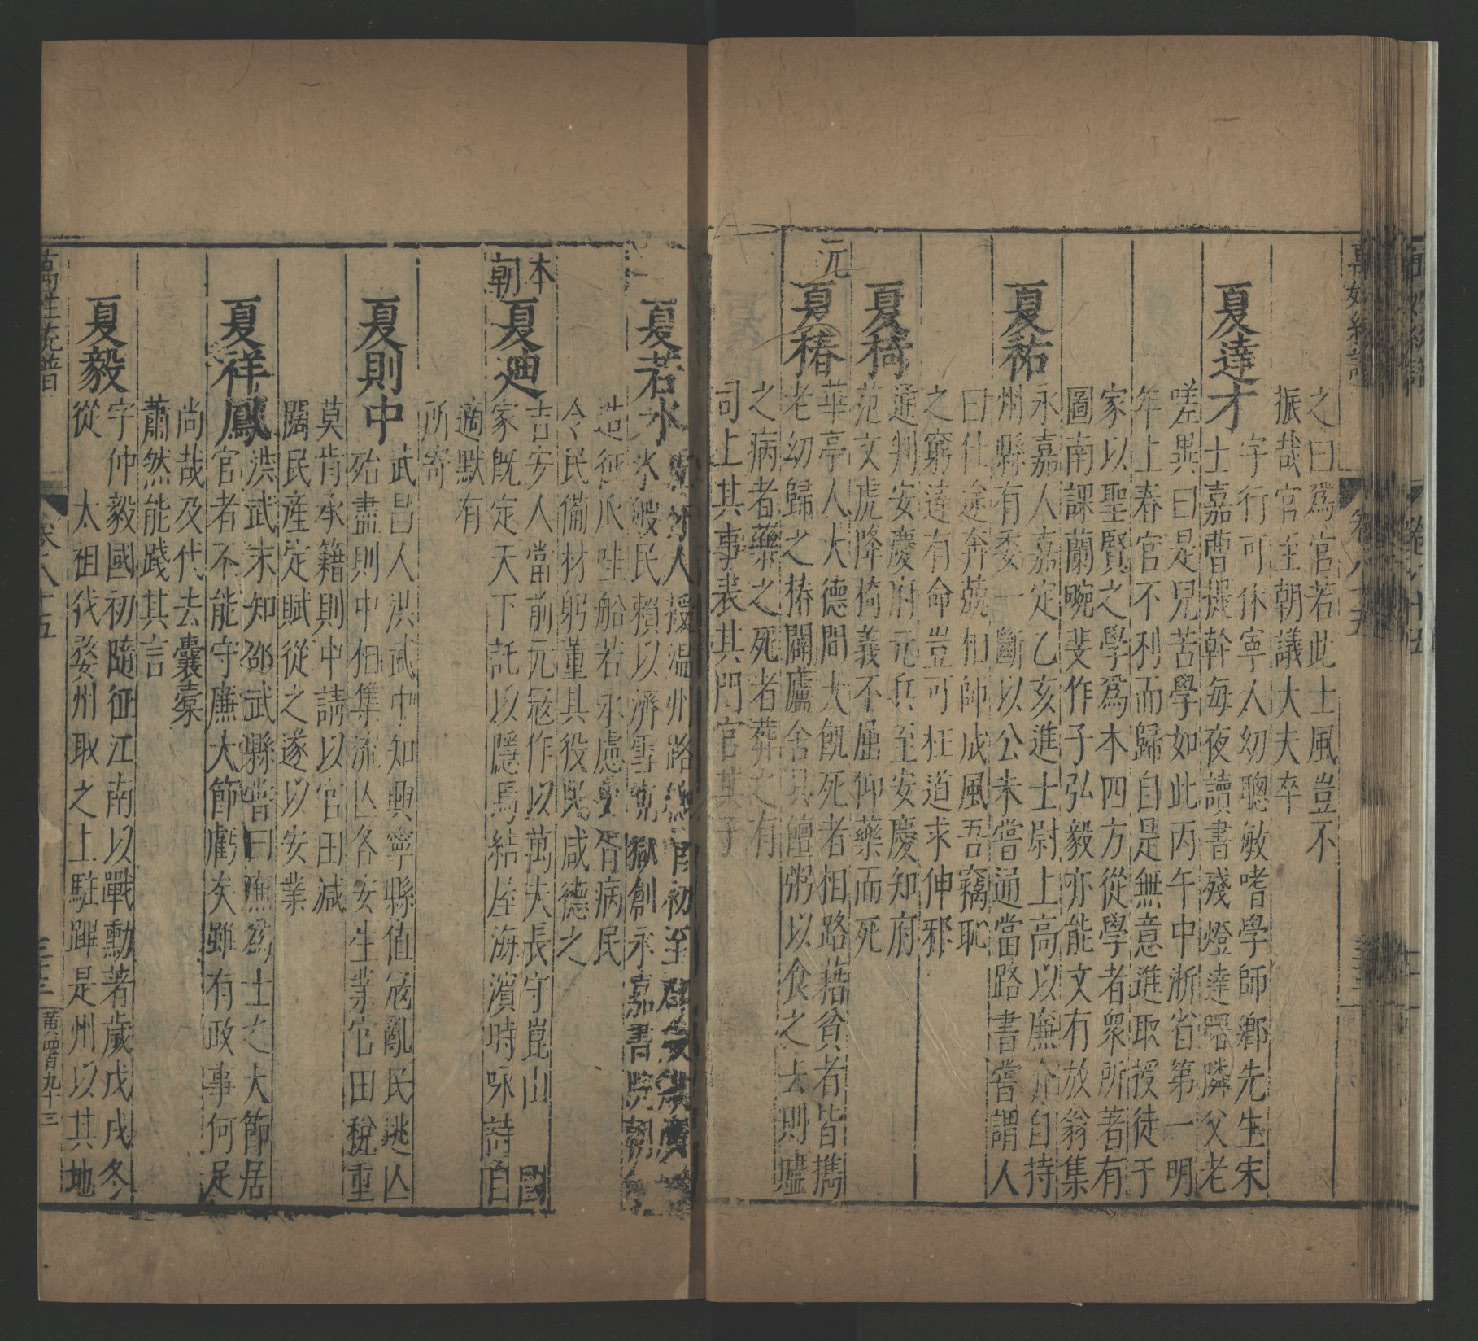 萬姓統譜
卷八十五
之曰爲官若此士風豈不
振哉官至朝議大夫卒
夏達才
字行可休寧人幼聰敏嗜學師鄉先生宋
士嘉曹提幹每夜讀書殘燈達曙隣父老
嗟異曰是兒苦學如此丙午中浙省第一明
年上春官不利而歸自是無意進取授徒于
家以聖賢之學爲本四方從學者衆所著有
圖南課蘭畹斐作子弘毅亦能文有放翁集
夏祐
永嘉人嘉定乙亥進士尉上高以廉介自持
州縣有委一斷以公未嘗通當路書嘗謂人
曰仕途奔競相師成風吾竊恥
之窮達有命豈可枉道求伸邪
夏椅
通判安慶府元兵至安慶知府
范文虎降椅義不屈仰藥而死
元
夏椿
華亭人大德間大飢死者相路藉貧者皆攜
老幼歸之椿闢廬舍具饘粥以食之去則噓
之病者藥之死者葬之有
司上其事表其門官其子
夏若水
人授温州路總管初至
水般民賴以濟雪冤獄創永嘉書院朝
造征爪哇船若水慮吏胥病民
令民備材躬董其役民咸德之
本朝
夏迪
吉安人當前元冦作以萬夫長守崑山 國
家旣定天下託以隱焉結屋海濱時咏詩自
適默有
所寄
夏則中
武昌人洪武中知興寧縣值冦亂民逃亾
殆盡則中招集流亾各安生業官田稅重
莫肯承籍則中請以官田減
閣民產定賦從之遂以安業
夏祥鳳
洪武末知邵武縣嘗曰廉爲士之大節居
官者不能守廉大節虧矣雖有政事何足
尚哉及代去囊槖
蕭然能踐其言
夏毅
字仲毅國初隨征江南以戰勳著歲戊戌冬
從 太祖伐婺州取之上駐蹕是州以其地
萬姓統譜
卷八十五
三十三